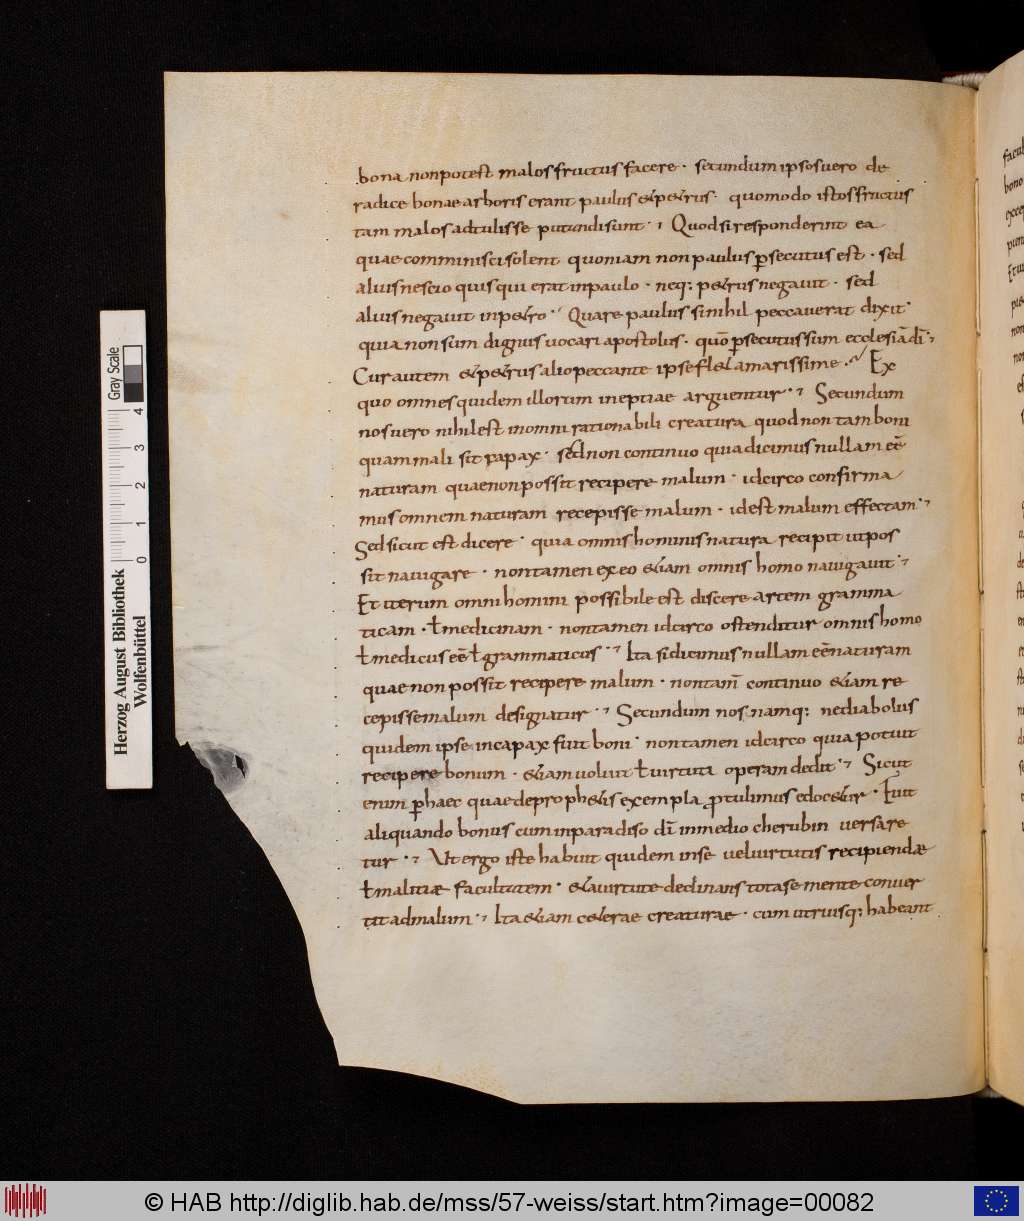 bona non potest malos fructus facere · secundum ipsos uero de
radice bonae arboris erant paulus & p&rus · quomodo istos fructus
tam malos adtulisse putandi sunt · Quod si responderint ea
quae comminisci solent quoniam non paulus ꝑsecutus est · sed
alius nescio quis qui erat in paulo · neq; p&rus negauit · sed
alius negauit in p&ro · Quare paulus si nihil peccauerat dixit ·
quia non sum dignus uocari apostolus · quō ꝑsecutus sum ecclesiā dī ·
Cur autem & p&rus alio peccante ipse fl& amarissime · Ex
quo omnes quidem illorum ineptiae arguentur · Secundum
nos uero nihil est in omni rationabili creatura quod non tam boni
quam mali sit capax · sed non continuo quia dicimus nullam eē
naturam quae non possit recipere malum · idcirco confirma
mus omnem naturam recepisse malum · id est malum effectam ·
Sed sicut est dicere · quia omnis hominis natura recipit ut pos
sit nauigare · non tamen ex eo &iam omnis homo nauigauit ·
Et iterum omni homini possibile est discere artem gramma
ticam · ł medicinam · non tamen idcirco ostenditur omnis homo
ł medicus eē ł grammaticus · Ita si dicimus nullam eē naturam
quae non possit recipere malum · non tam̄ continuo &iam re
cepisse malum designatur · Secundum nos namq; ne diabolus
quidem ipse incapax fuit boni · non tamen idcirco quia potuit
recipere bonum · &iam uoluit ł uirtuti operam dedit · Sicut
enim ꝑ haec quae de proph&is exempla ꝓtulimus edoc&ur · Fuit
aliquando bonus cum in paradiso dī in medio cherubin uersare
tur · Ut ergo iste habuit quidem in se uel uirtutis recipiendæ
ł malitiæ facultatem · & a uirtute declinans tota se mente conuer
tit ad malum · Ita &iam c&erae creaturae · cum utriusq; habeant
facul
bono
Herzog August Bibliothek
Wolfenbüttel
Gray Scale
0 1 2 3 4
© HAB http://diglib.hab.de/mss/57-weiss/start.htm?image=00082